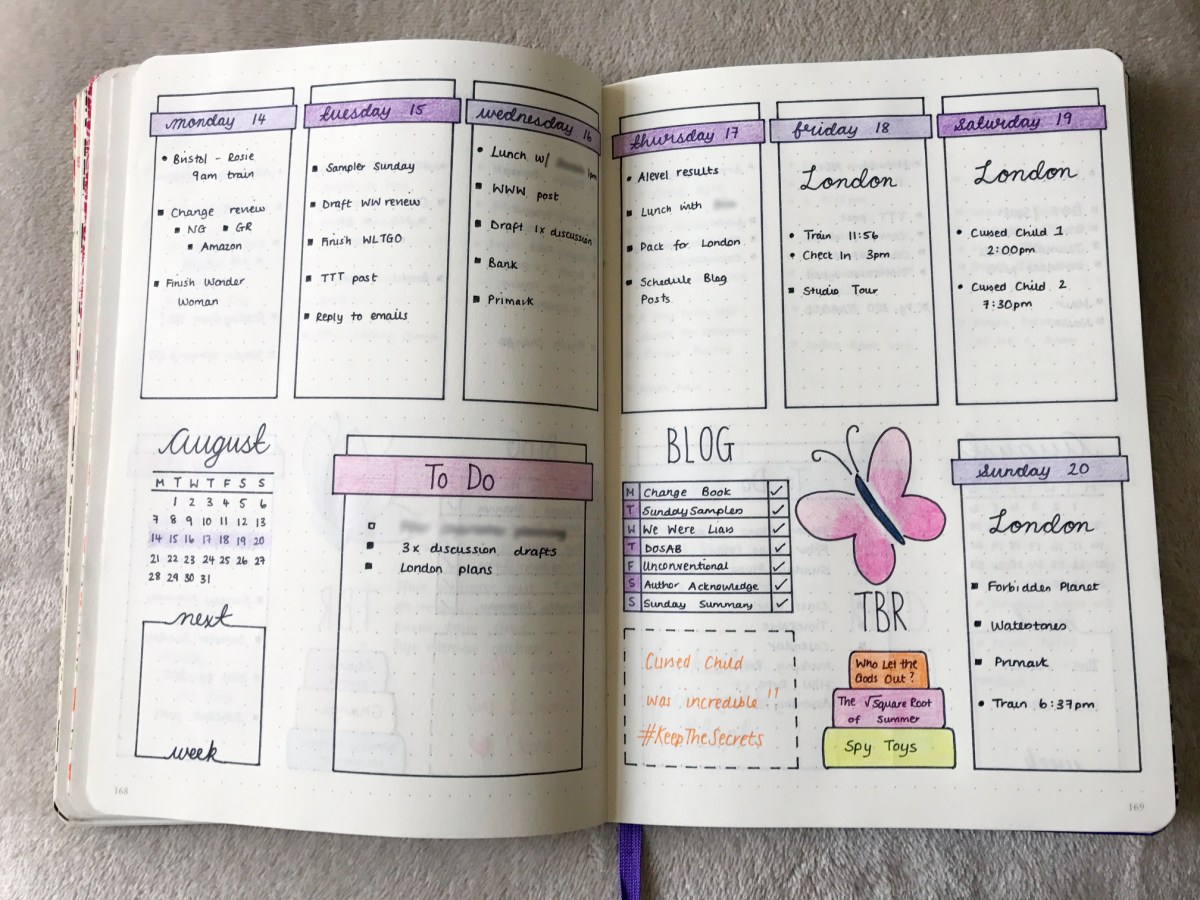 monday 14
Bristol - Rosie
9am train
Change review
NG GR
Amazon
Finish Wonder
Woman
tuesday 15
Sampler Sunday
Draft WW review
Finish WLTGO
TTT post
Reply to emails
wednesday 16
Lunch w/
1pm
WWW post
Draft 1x discussion
Bank
Primark
thursday 17
Alevel results
Lunch with
Pack for London
Schedule Blog
Posts
friday 18
London
Train 11:56
Check In 3pm
Studio Tour
saturday 19
London
Cursed Child 1
2:00pm
Cursed Child 2
7:30pm
august
M T W T F S S
1 2 3 4 5 6
7 8 9 10 11 12 13
14 15 16 17 18 19 20
21 22 23 24 25 26 27
28 29 30 31
next
week
To Do
3x discussion drafts
London plans
168
BLOG
M Change Book ✓
T Sunday Samples ✓
W We Were Liars ✓
T DOSAB ✓
F Unconventional ✓
S Author Acknowledge ✓
S Sunday Summary ✓
Cursed Child
was incredible !!
#KeepTheSecrets
TBR
Who Let the
Gods Out?
The √Square Root
of Summer
Spy Toys
sunday 20
London
Forbidden Planet
Waterstones
Primark
Train 6:37pm
169